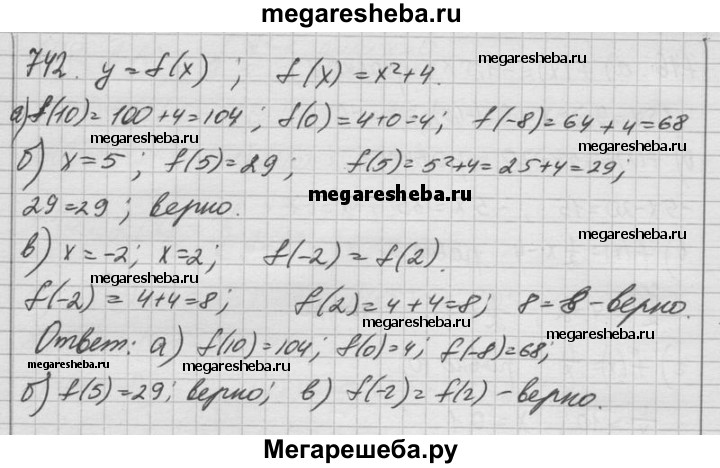 megaresheba.ru
742. y = f(x) ; f(x) = x²+4. megaresheba.ru
а) f(10) = 100+4=104 ; f(0)=4+0=4; f(-8)=64+4=68
megaresheba.ru megaresheba.ru
б) x=5 ; f(5)=29 ; f(5)=5²+4=25+4=29;
megaresheba.ru
29=29 ; верно.
megaresheba.ru
в) x=-2; x=2; f(-2) = f(2).
megaresheba.ru
f(-2) = 4+4=8; f(2)=4+4=8; 8=8-верно.
megaresheba.ru
Ответ: а) f(10)=104; f(0)=4; f(-8)=68;
megaresheba.ru megaresheba.ru megaresheba.ru
б) f(5)=29; верно; в) f(-2)=f(2) - верно.
Мегарешеба.ру